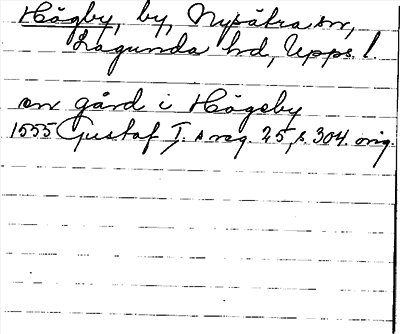 Högby, by, Nysätra sn,
Lagunda hd, Upps. l.
en gård i Högeby
1555 Gustaf I. s reg. 25, s. 304. orig.